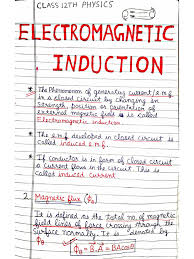 CLASS 12TH PHYSICS
ELECTROMAGNETIC
INDUCTION
* The Phenomenon of generating current/e.m.f
in a closed circuit by changing in
Strength, position or orientation of
external magnetic field is called
Electromagnetic induction.
* The e.m.f developed in closed circuit is
called induced e.m.f.
* If conductor is in form of closed circuit
a Current flows in the circuit. This is
Called induced current
2. Magnetic flux (ϕB)
It is defined as the total no. of magnetic
field lines of force crossing through the
Surface normally. It is denoted by
ϕB = B.A = BA cosθ